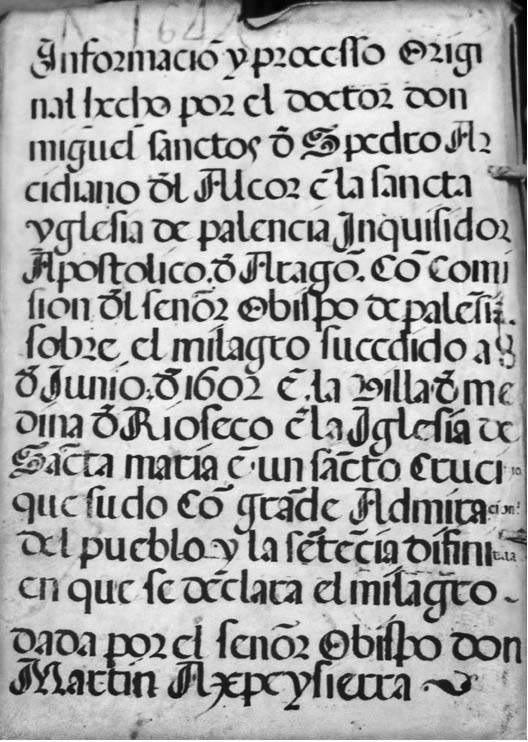 Informaciõ y processo Origi
nal hecho por el doctor don
miguel sanctos d̃ S pedro Ar
cidiano d̃l Alcor ẽ la sancta
yglesia de palencia Inquisidor
Apostolico. d̃ Aragõ. Cõ Comi
sion d̃l señor Obispo de
sobre el milagro sucedido a 8
d̃ Junio, d̃ 1602 ẽ la Villa d̃ me
dina d̃ Rioseco ẽ la Iglesia de
Sãcta maria ẽ un sãcto Cruci
que sudo Cõ grãde Admiracion
del pueblo y la sẽtẽcia difiniti.la
en que se declara el milagro
dada por el señor Obispo don
Martin Axpe y sierra